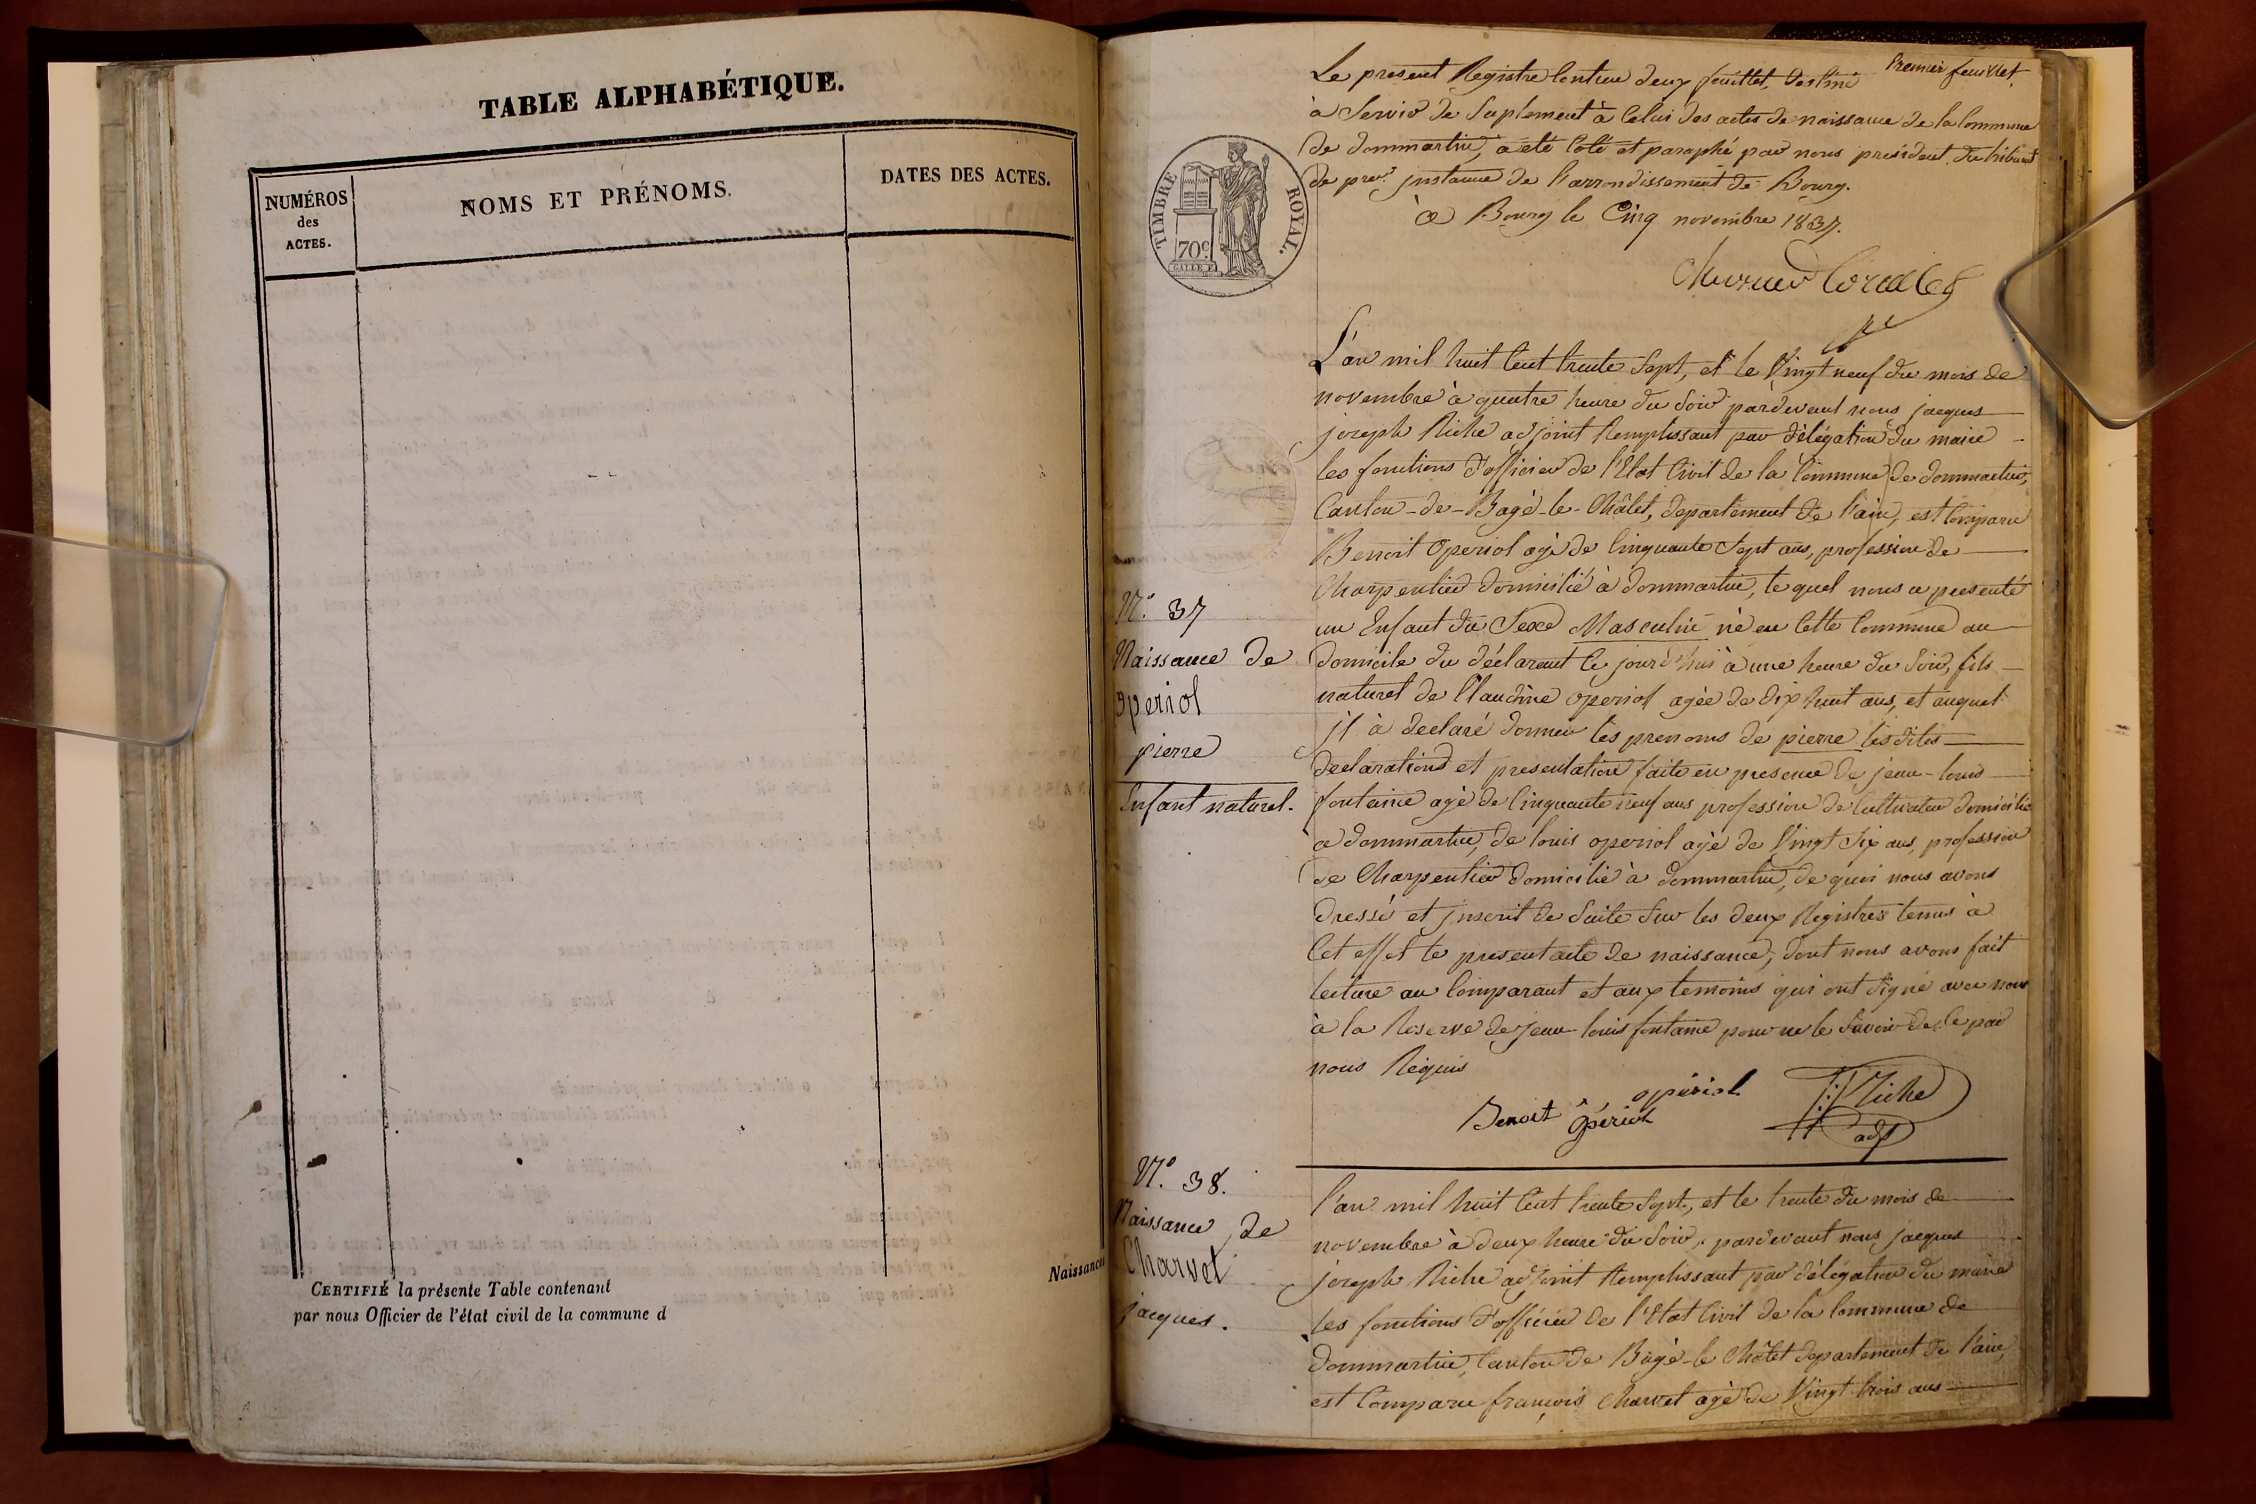 TABLE ALPHABÉTIQUE.
NUMÉROS
des
ACTES.
NOMS ET PRÉNOMS.
DATES DES ACTES.
CERTIFIÉ la présente Table contenant
par nous Officier de l'état civil de la commune d
Naissances
Premier feuillet.
Le present Registre Contenu deux feuillet, Destiné
à Servir de Suplement à Celui des actes de naissance de la Commune
de dommartin, a été Coté et paraphé par nous president du tribunal
de pre.re jnstance de l'arrondissement de Bourg.
à Bourg le Cinq novembre 1837.
TIMBRE ROYAL.
70c.
N.o 37
Naissance de
operiol
pierre
Enfant naturel.
L'an mil huit Cent trente Sept, et le Vingt neuf du mois de
novembre à quatre heure du Soir pardevant nous jacques
joseph Riche adjoint Remplissant par délégation du maire
les fonctions d'officier de l'Etat Civil de la Commune de dommartin,
Canton-de-Bagé-le-Châtel, departement de l'ain, est Comparu
Benoit Operiol agé de Cinquante Sept ans, profession de
Charpentier domicilié à dommartin, le quel nous a presenté
un Enfant du Sexe Masculin né en Cette Commune au
domicile du déclarant Ce jourd'hui à une heure du Soir, fils
naturel de Claudine operiol agée de dix huit ans, et auquel
jl à declaré donner les prenoms de pierre les dites
declarations et presentation faite en presence de jean-louis
fontaine agé de Cinquante neuf ans profession de Cultivateur domicilié
a dommartin, de louis operiol agé de Vingt Six ans, profession
de Charpentier domicilié à dommartin, de quoi nous avons
dressé et jnscrit de Suite Sur les deux Registres tenus à
Cet effet le present acte de naissance, dont nous avons fait
lecture au Comparant et aux temoins qui ont Signé avec nous
à la Reserve de jean-louis fontaine pour ne le Savoir de Ce par
nous Réquis
Benoit opériol
opériol
JJ Riche
adj
N.o 38.
Naissance de
Charvet
jacques.
l'an mil huit Cent trente Sept, et le trente du mois de
novembre à deux heure du Soir, pardevant nous jacques
joseph Riche adjoint Remplissant par délégation du maire
les fonctions d'officier de l'Etat Civil de la Commune de
dommartin, Canton de Bagé-le Châtel departement de l'ain,
est Comparu françois Charvet agé de Vingt trois ans